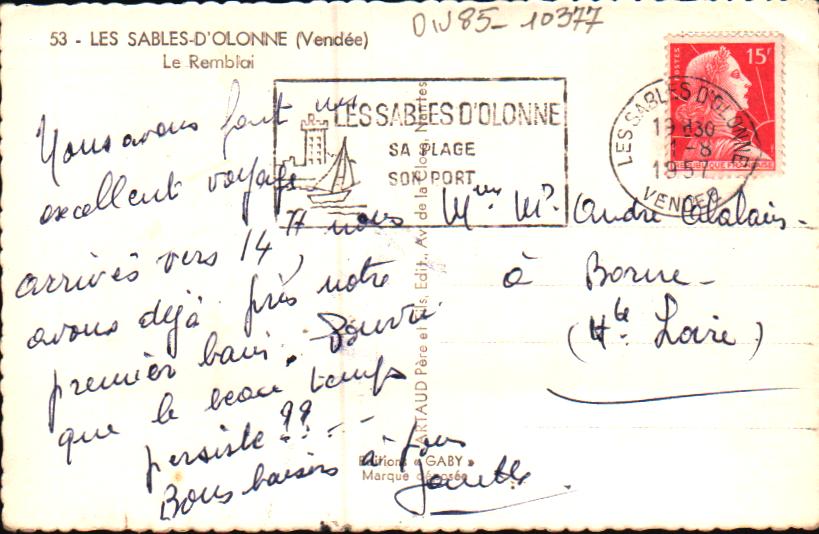 DIV85-10377
53 - LES SABLES-D'OLONNE (Vendée)
Le Remblai
15F
POSTES
REPUBLIQUE FRANÇAISE
LES SABLES D'OLONNE
19H30
-8
1957
VENDEE
LES SABLES D'OLONNE
SA PLAGE
SON PORT
Nous avons fait un
excellent voyage
arrivés vers 14 H nous
avons déjà pris notre
premier bain. Pourvu
que le beau temps
persiste !!
Bons baisers à tous
Mme Mr André
à Borne
(Hte Loire)
ARTAUD Père et Fils, Édit., Av. de la Nantes
Éditions « GABY »
Marque déposée